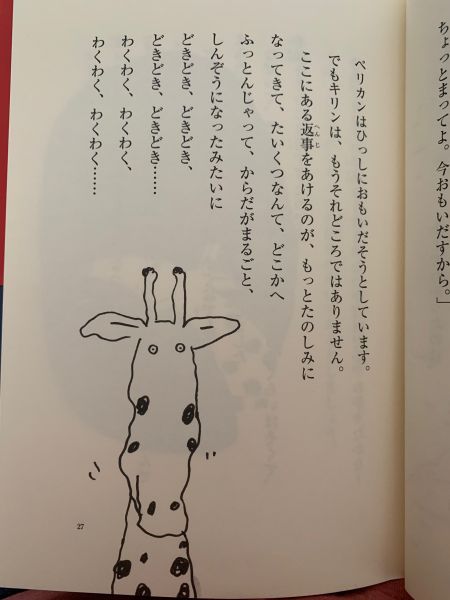 ちょっとまってよ。今おもいだすから。」
ペリカンはひっしにおもいだそうとしています。
でもキリンは、もうそれどころではありません。
ここにある返事をあけるのが、もっとたのしみに
へんじ
なってきて、たいくつなんて、どこかへ
ふっとんじゃって、からだがまるごと、
しんぞうになったみたいに
どきどき、どきどき、
どきどき、どきどき……
わくわく、わくわく、
わくわく、わくわく……
27